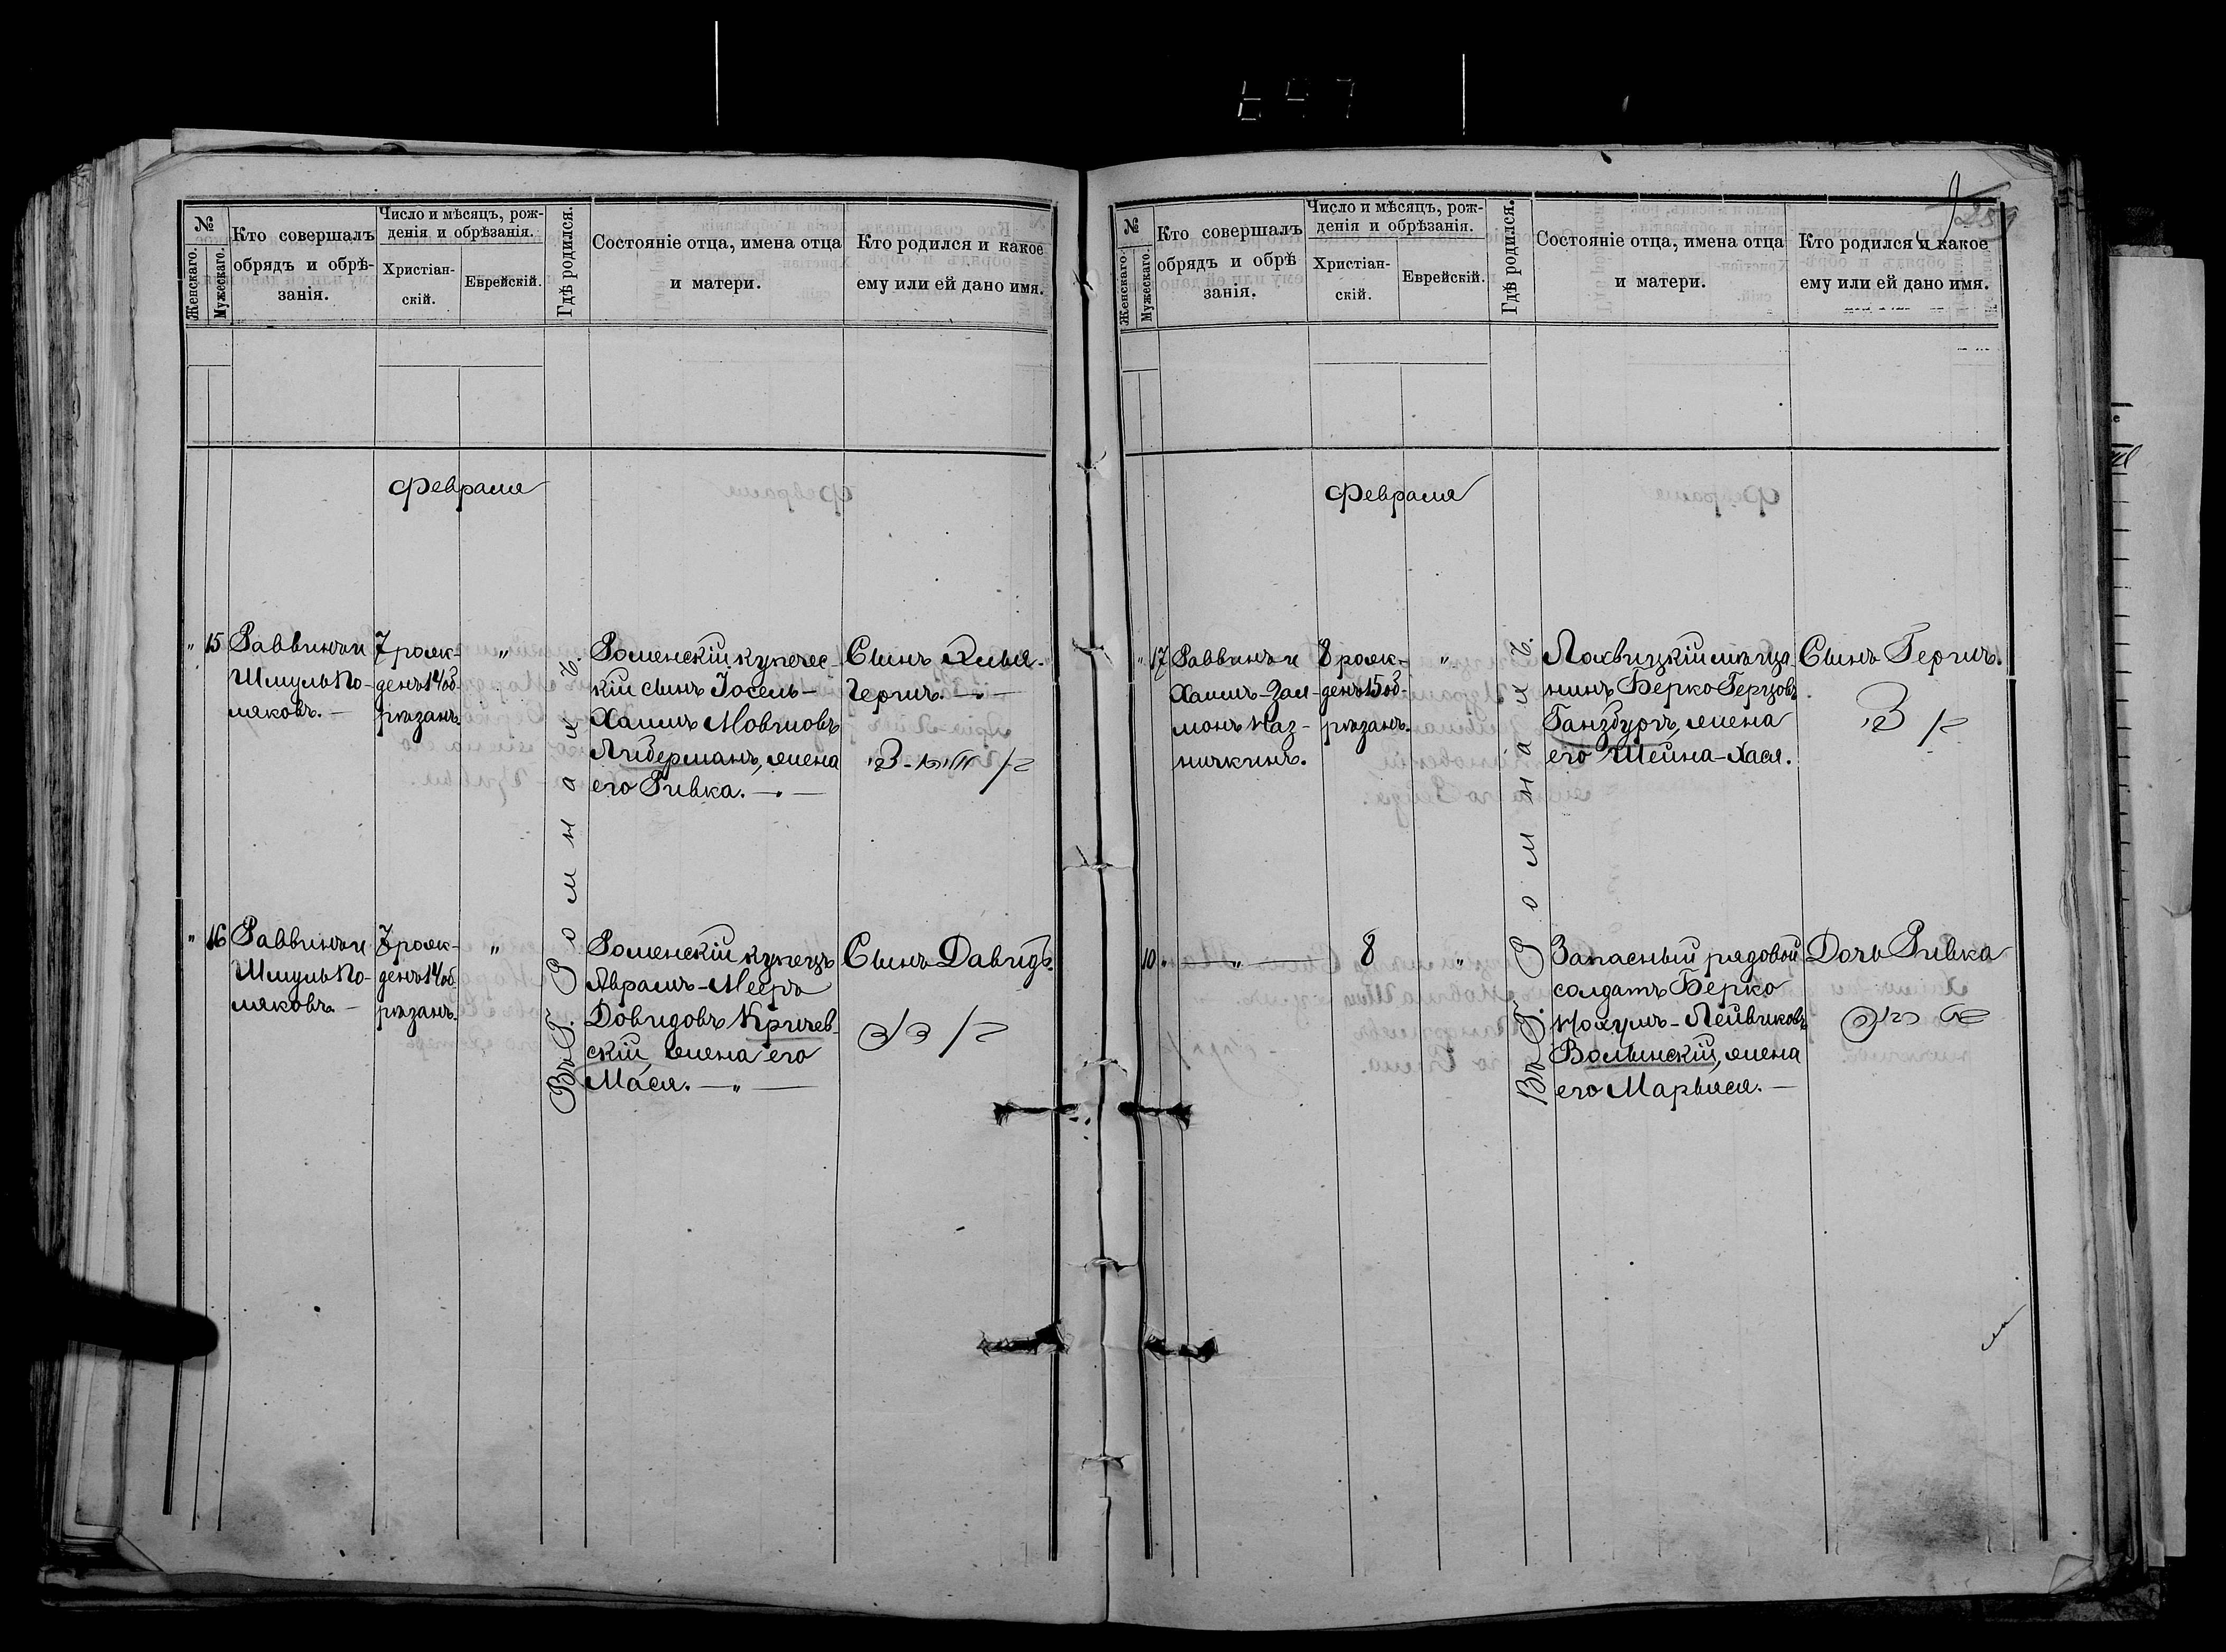 №
Женскаго.
Мужескаго.
Кто совершалъ
обрядъ и обрѣ-
занія.
Число и мѣсяцъ, рож-
денія и обрѣзанія.
Христіан-
скій.
Еврейскій.
Гдѣ родился.
Состояніе отца, имена отца
и матери.
Кто родился и какое
ему или ей дано имя.
Февраля
"
15
Раввинъ и
Шмуль По-
ляковъ. —
7 рож-
денъ 14 об-
рѣзанъ.
"
Въ Г. Ромнахъ.
Роменскій купечес-
кій сынъ Іосель-
Хаимъ Мовшовъ
Либерманъ, жена
его Ривка. —
Сынъ Хлы-
Гершъ. —
"
16
Раввинъ и
Шмуль По-
ляковъ. —
7 рож-
денъ 14 об-
рѣзанъ.
"
Роменскій купецъ
Аврамъ-Мееръ
Довидовъ Кричев-
скій, жена его
Мася. — " —
Сынъ Давидъ.
בן דוד
№
Женскаго.
Мужескаго.
Кто совершалъ
обрядъ и обрѣ
занія.
Число и мѣсяцъ, рож-
денія и обрѣзанія.
Христіан-
скій.
Еврейскій.
Гдѣ родился.
Состояніе отца, имена отца
и матери.
Кто родился и какое
ему или ей дано имя.
Февраля
"
17
Раввинъ и
Хаимъ-Зал-
монъ Каз-
ничкинъ.
8 рож-
денъ 15 об-
рѣзанъ.
"
Въ Г. Ромнахъ.
Лохвицкій мѣща
нинъ Берко Герцовъ
Ганзбургъ, жена
его Шейна-Хася.
Сынъ Гершъ.
10
"
— " —
8
"
Запасный рядовой
солдатъ Берко
Нохумъ-Лейвиковъ
Волынскій, жена
его Марьяся. —
Дочь Ривка